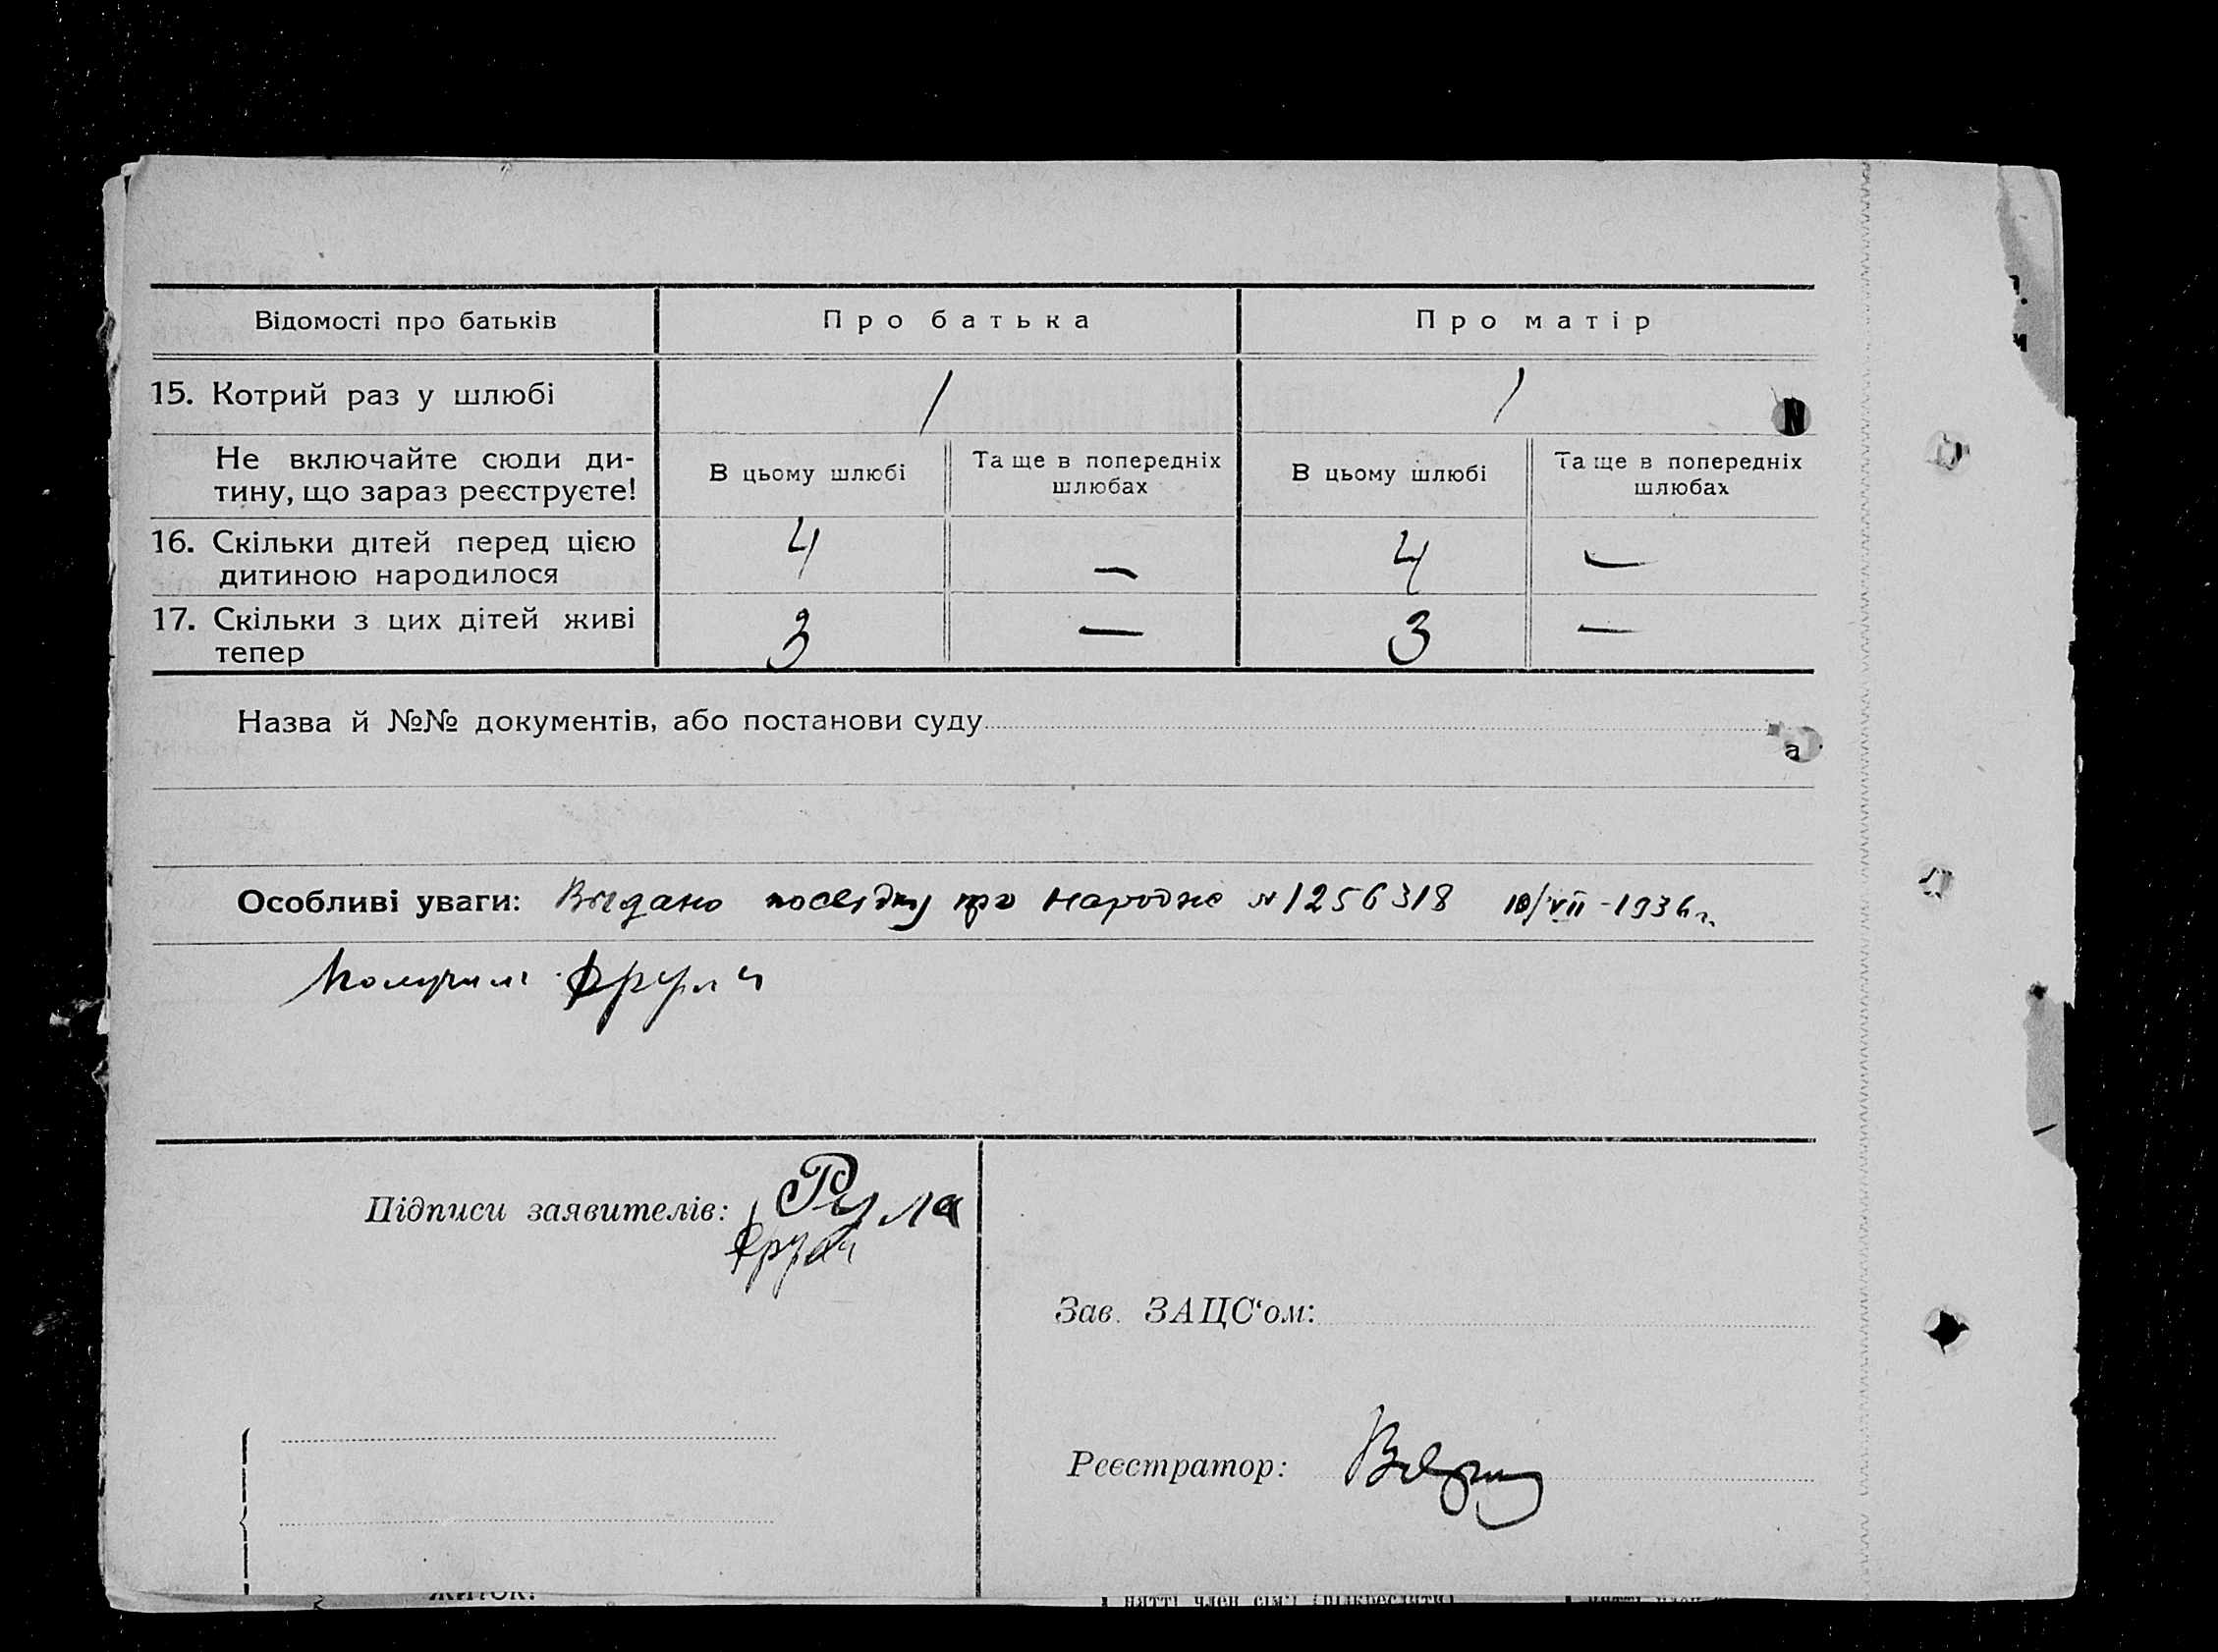 Відомості про батьків
Про батька
Про матір
15. Котрий раз у шлюбі
1
1
N
Не включайте сюди ди-
тину, що зараз реєструєте!
В цьому шлюбі
Та ще в попередніх
шлюбах
В цьому шлюбі
Та ще в попередніх
шлюбах
16. Скільки дітей перед цією
дитиною народилося
4
—
4
—
17. Скільки з цих дітей живі
тепер
3
—
3
—
Назва й №№ документів, або постанови суду
а
Особливі уваги: Видано посвідку про народж N 1256318 10/VII-1936 г.
Підписи заявителів:
Зав. ЗАЦС‘ом:
Реєстратор: